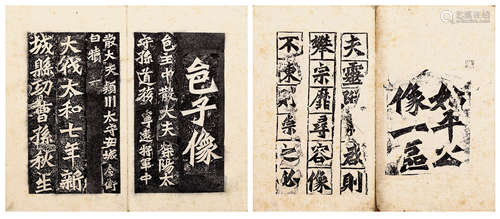 邑子像
邑主中散大夫滎陽太
守孫道務寧遠將軍中
散大夫潁川太守安城令衛
白犢
大代太和七年新
城縣功曹孫秋生
始平公
像一區
夫靈啟則
攀宗靡尋容像
不陳則崇之必